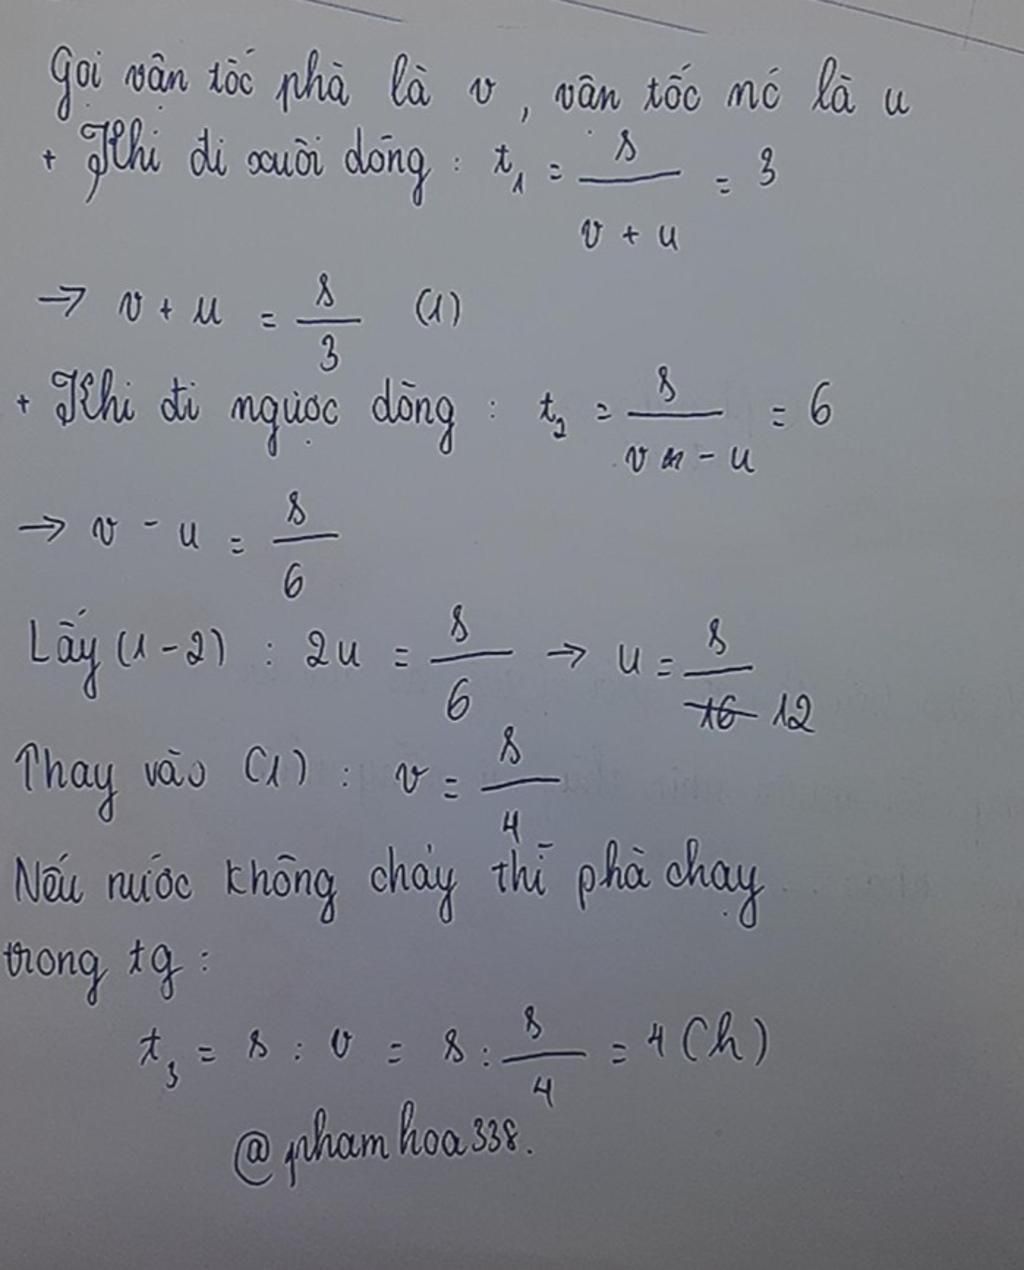 Gọi vận tốc phà là v, vận tốc nó là u
+ Khi đi xuôi dòng : t₁ = s/(v + u) = 3
→ v + u = s/3 (1)
+ Khi đi ngược dòng : t₂ = s/(v - u) = 6
→ v - u = s/6
Lấy (1-2) : 2u = s/6 → u = s/12
Thay vào (1) : v = s/4
Nếu nước không chảy thì phà chạy
trong tg :
t₃ = s : v = s : s/4 = 4 (h)
@phamhoa338.